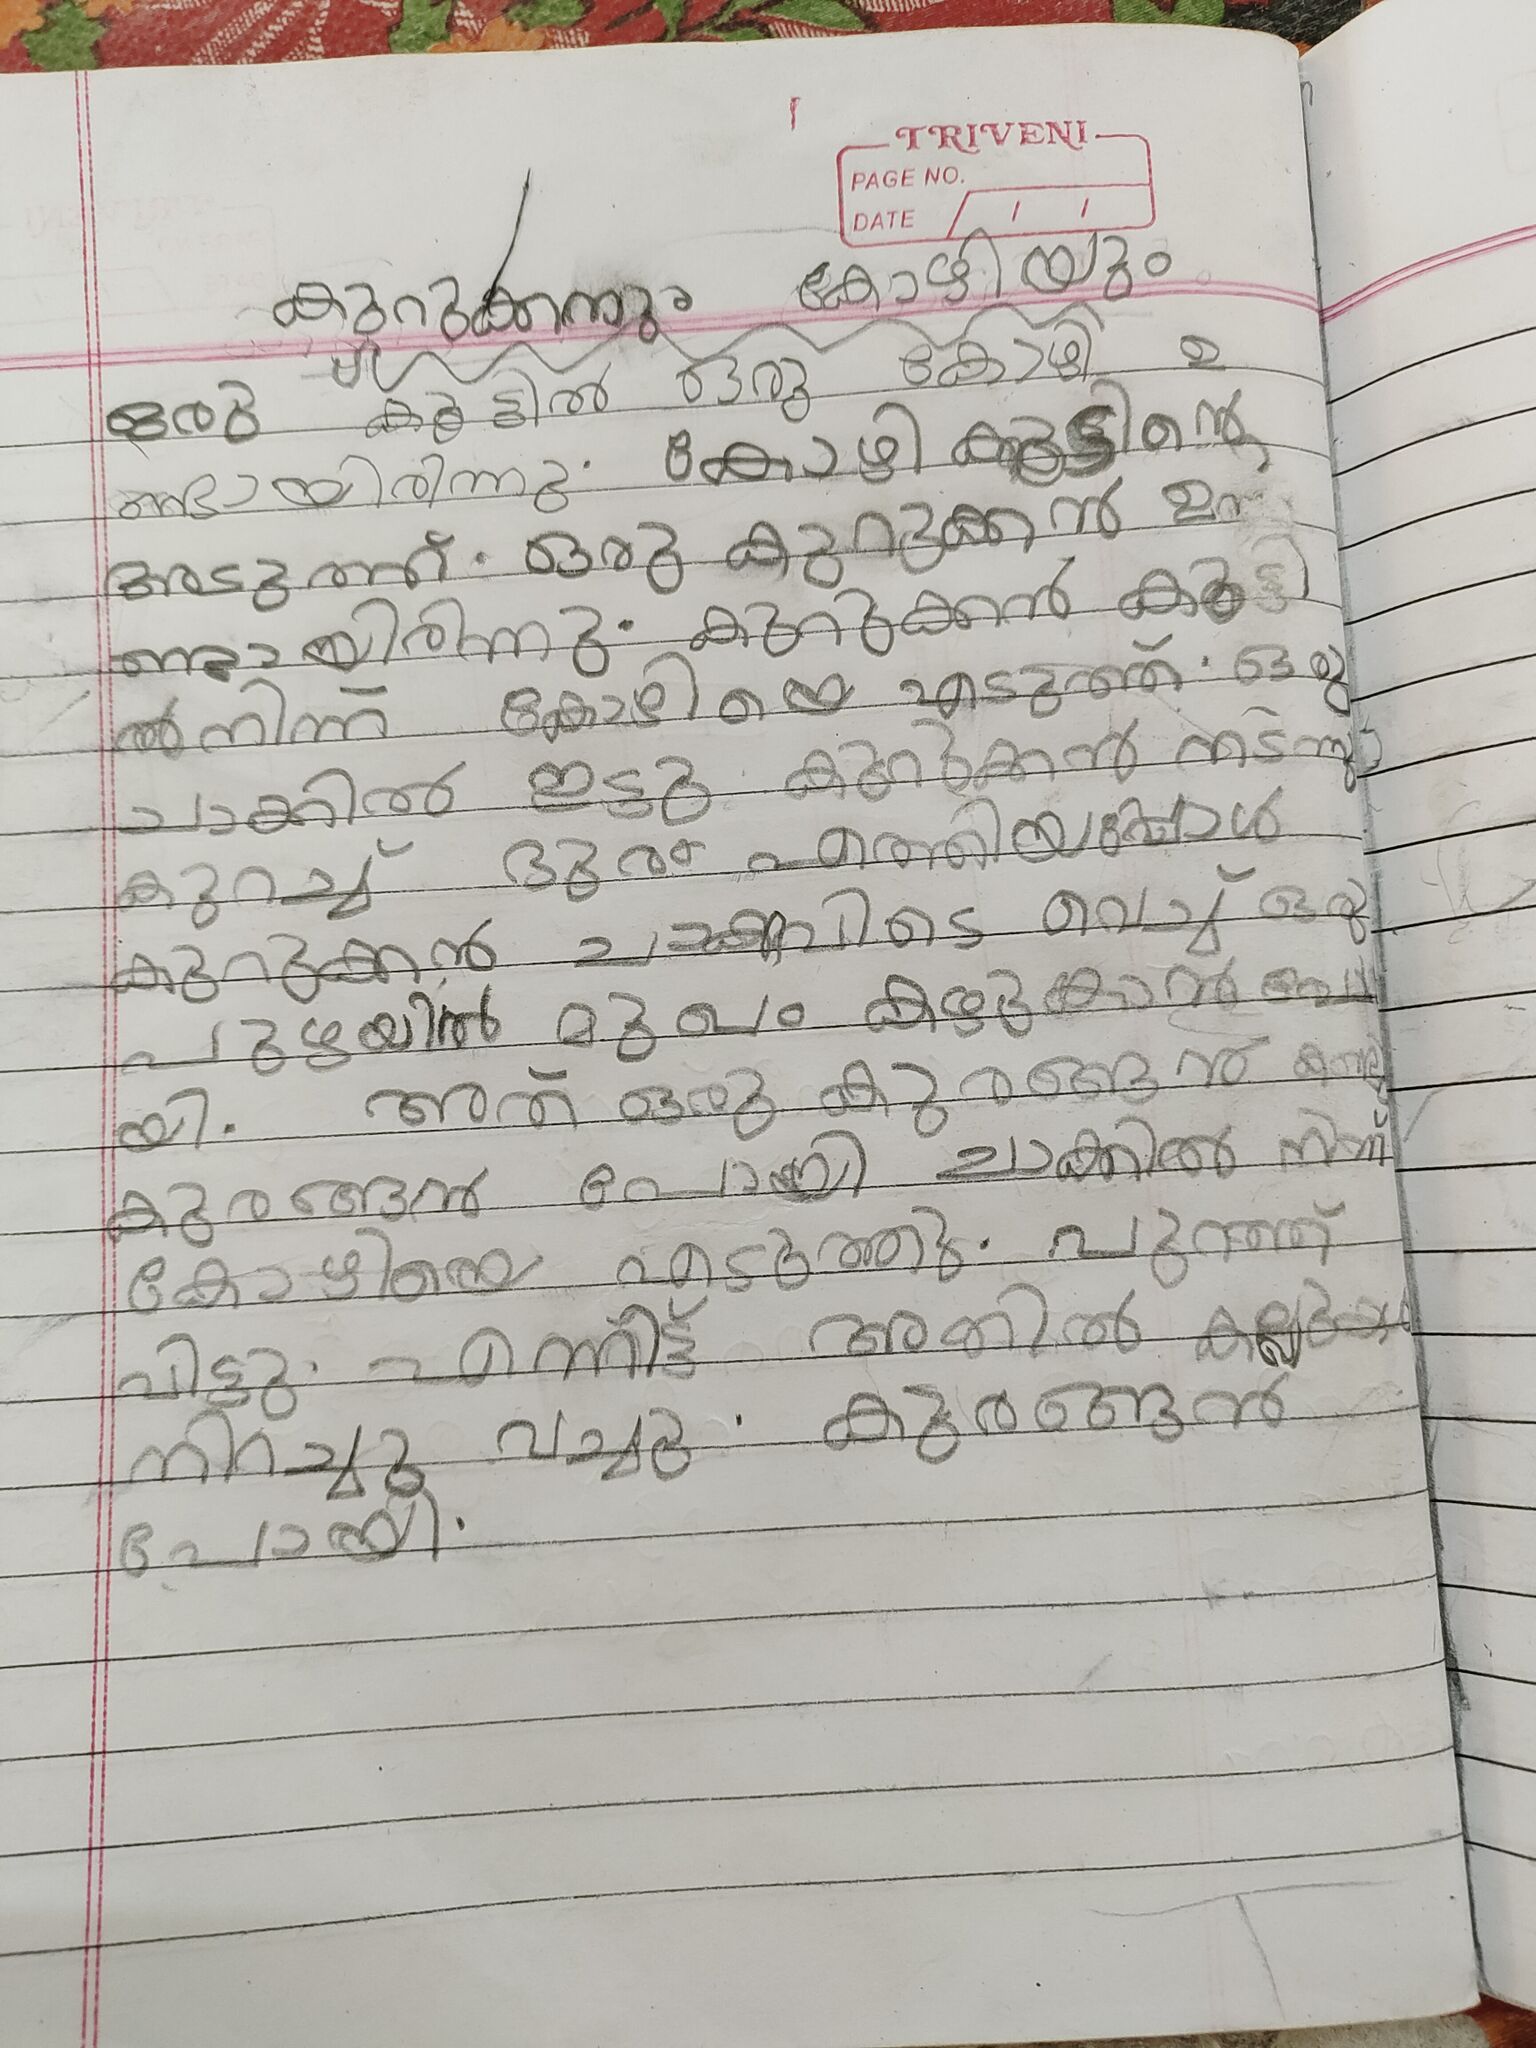 TRIVENI
PAGE NO.
DATE / / /
കുറുക്കനും കോഴിയും
ഒരു കൂട്ടിൽ ഒരു കോഴി ഉ
ണ്ടായിരിന്നു. കോഴി കൂട്ടിന്റെ
അടുത്ത്. ഒരു കുറുക്കൻ ഉ
ണ്ടായിരിന്നു. കുറുക്കൻ കൂട്ടി
ൽനിന്ന് കോഴിയെ എടുത്ത്. ഒരു
ചാക്കിൽ ഇട്ടു. കുറുക്കൻ നടന്നു
കുറച്ച് ദൂരം എത്തിയപ്പോൾ
കുറുക്കൻ വെച്ച് ഒരു
പുഴയിൽ മുഖം കഴുകാൻ പോ
യി. അത് ഒരു കുരങ്ങൻ കണ്ടു
കുരങ്ങൻ പോയി ചാക്കിൽ നിന്ന്
കോഴിയെ എടുത്തു. പുറത്ത്
വിട്ടു. എന്നിട്ട് അതിൽ
നിറച്ചു വച്ചു. കുരങ്ങൻ
പോയി.